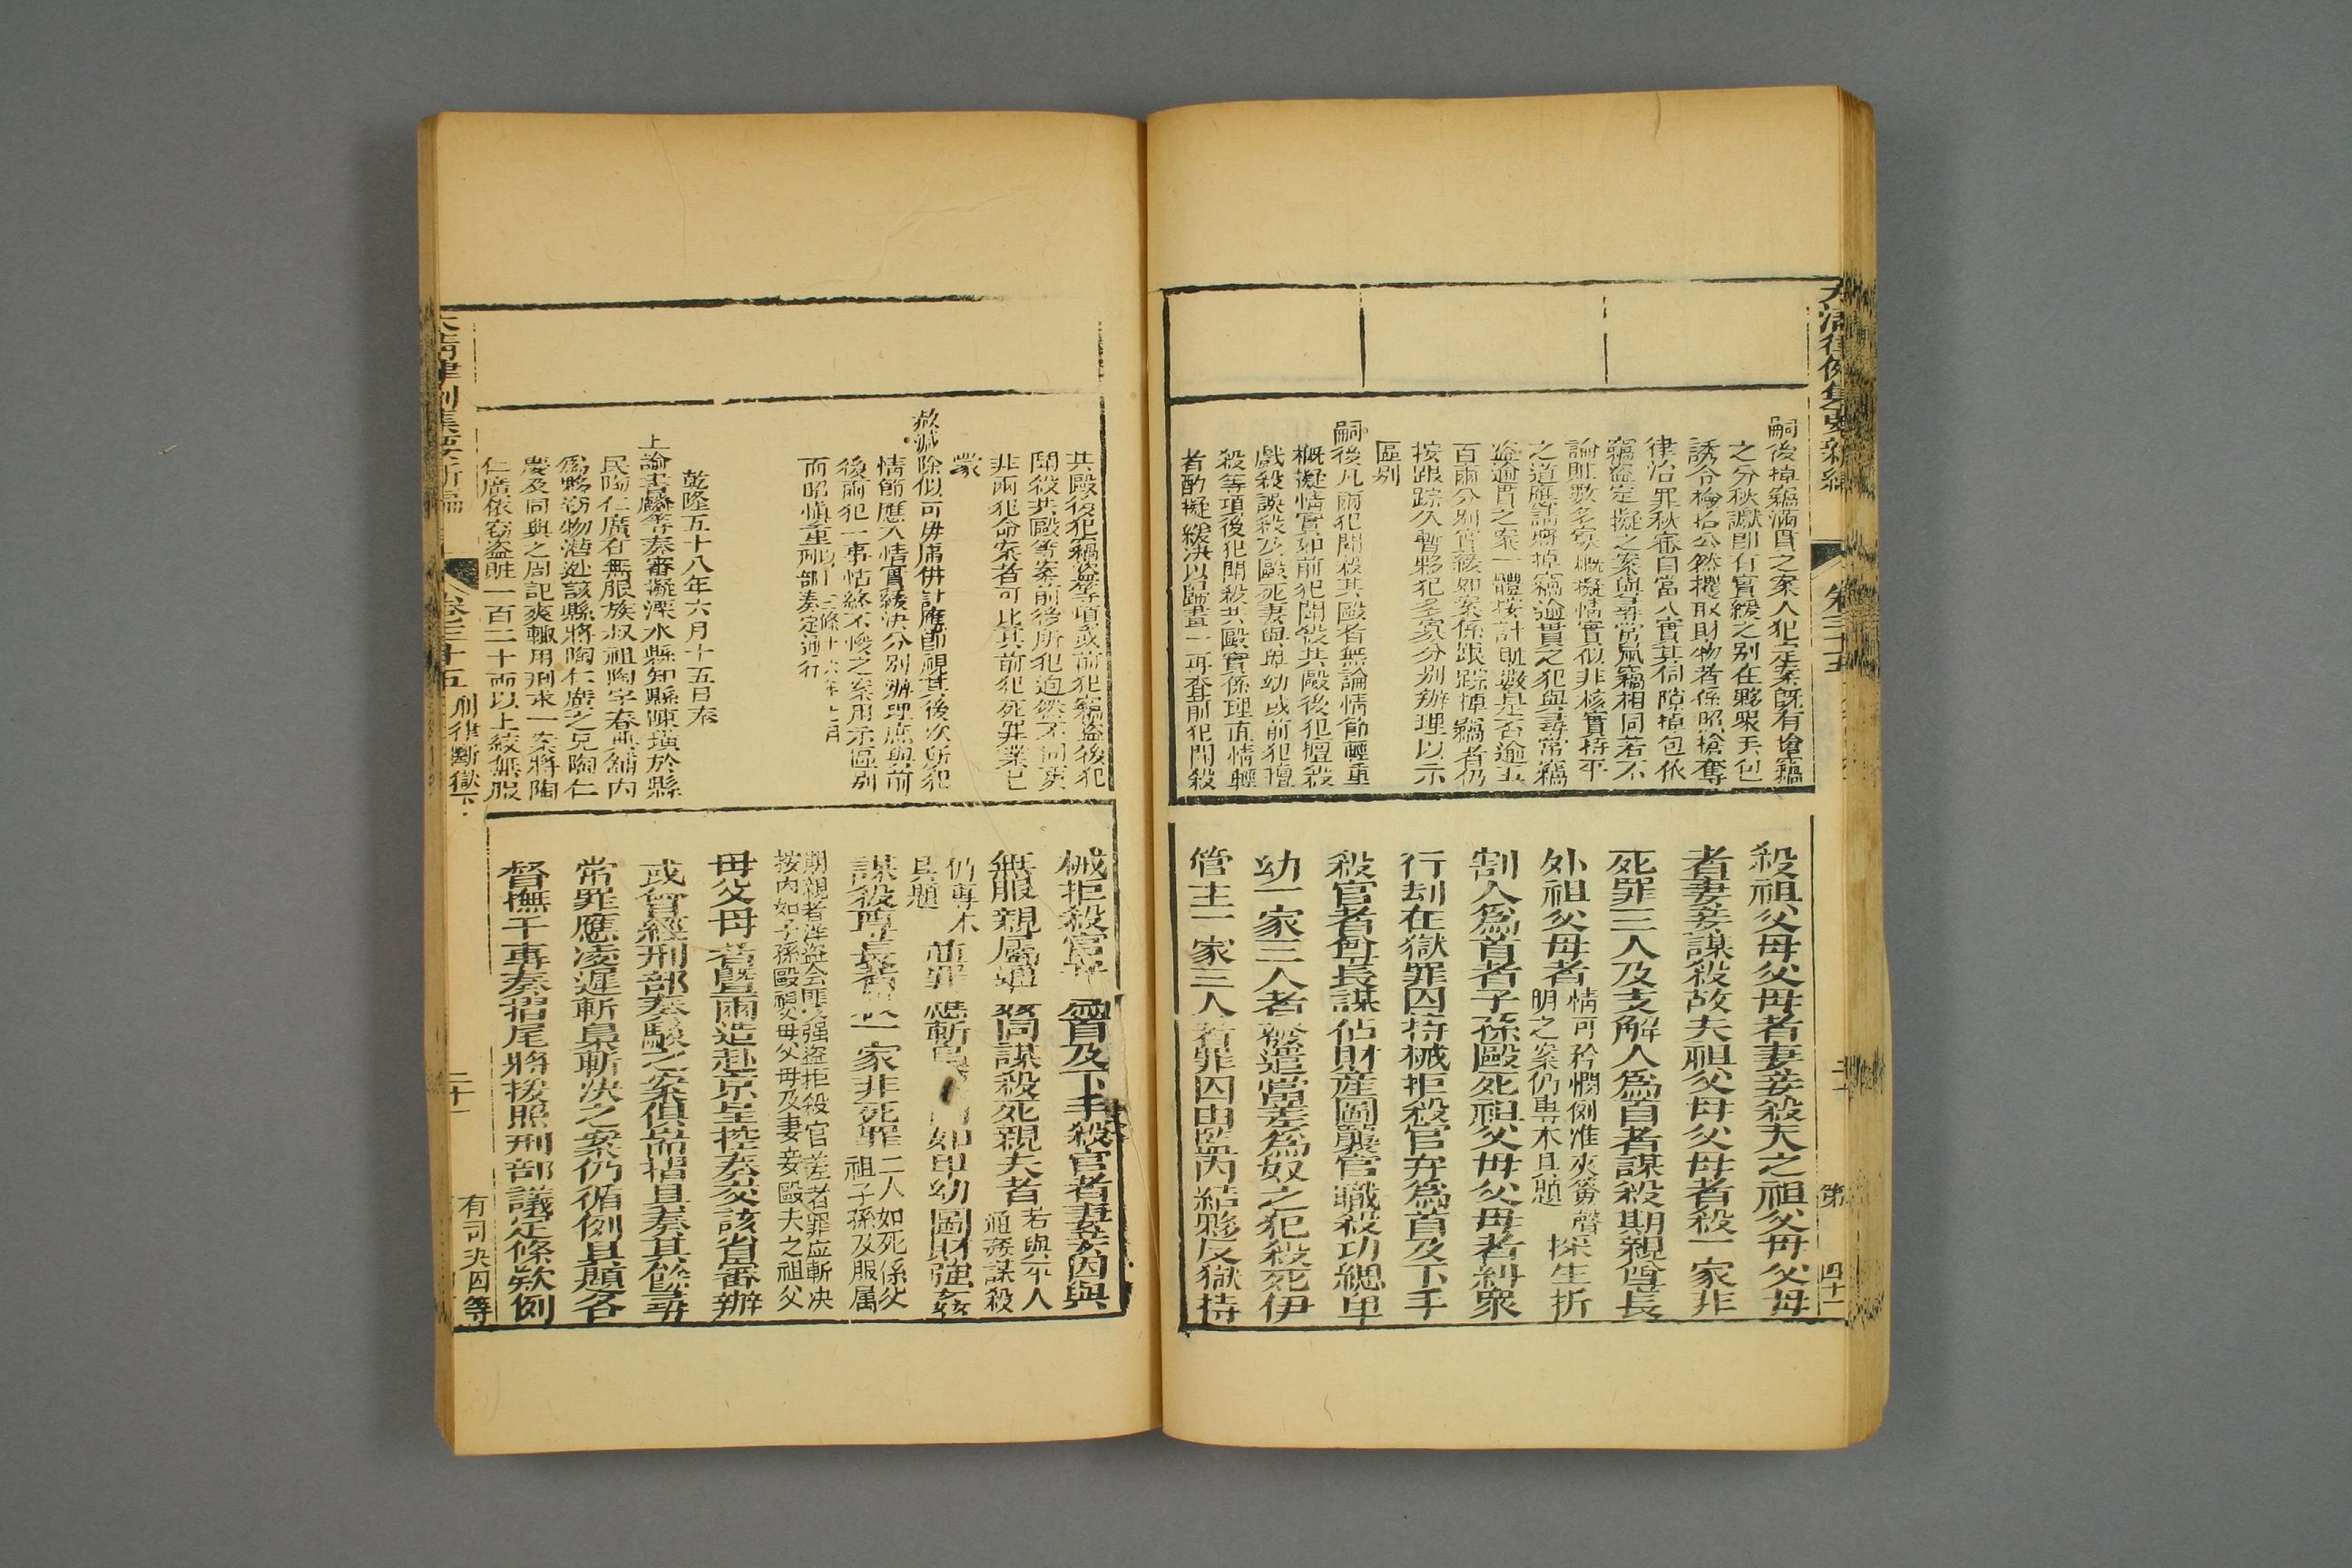 大清律例集要新編
卷三十五
嗣後掉竊滿貫之案人犯定案旣有搶竊
之分秋讞卽有實緩之別在夥衆天包
誘令掩拾公然攫取財物者係照搶奪
律治罪秋審自當入實其伺隙掉包依
竊盜定擬之案與尋常鼠竊相同若不
論賍數多寡槪擬情實似非核實持平
之道應請將掉竊逾貫之犯與尋常竊
盜逾貫之案一體按計賍數是否逾五
百兩分別實緩如案係跟踪掉竊者仍
按跟踪久暫夥犯多寡分別辦理以示
區別
嗣後凡兩犯鬪殺共毆者無論情節輕重
槪擬情實如前犯鬪殺共毆後犯擅殺
戲殺誤殺及毆死妻與卑幼或前犯擅
殺等項後犯鬪殺共毆實係理直情輕
者酌擬緩決以歸畫一再查前犯鬪殺
殺祖父母父母者妻妾殺夫之祖父母父母
者妻妾謀殺故夫祖父母父母者殺一家非
死罪三人及支解人爲首者謀殺期親尊長
外祖父母者情可矜憫例准夾籤聲明之案仍專本具題採生折
割人爲首者子孫毆死祖父母父母者糾衆
行刦在獄罪囚持械拒殺官弁爲首及下手
殺官者尊長謀佔財產圖襲官職殺功緦卑
幼一家三人者發遣當差爲奴之犯殺死伊
管主一家三人者罪囚由監內結夥反獄持
共毆後犯竊盜等項或前犯竊盜後犯
鬪殺共毆等案前後所犯迥然不同更
非兩犯命案者可比其前犯死罪業已
蒙
赦減除似可毋庸併計應卽視其後次所犯
情節應入情實緩決分別辦理庶與前
後兩犯一事怙終不悛之案用示區別
而昭慎重以上三條十六年七月刑部奏定通行
乾隆五十八年六月十五日奉
上諭書麟等奏審擬溧水縣知縣陳璜於縣
民陶仁廣在無服族叔祖陶宇春典舖內
爲夥竊物潛逃該縣將陶仁廣之兄陶仁
慶及同與之周記爽輒用刑求一案將陶
仁廣依竊盜賍一百二十兩以上絞無服
械拒殺官弁爲首及下手殺官者妻妾因與
無服親屬通姦同謀殺死親夫者若與平人通姦謀殺
仍專本具題並罪應斬梟如卑幼圖財強姦
謀殺尊長者殺一家非死罪二人如死係父祖子孫及服屬
期親者洋盜會匪及强盜拒殺官差者罪應斬决
按內如子孫毆祖父母父母及妻妾毆夫之祖父
母父母者暨兩造赴京呈控奏交該省審辦
或曾經刑部奏駁之案俱耑摺具奏其餘尋
常罪應凌遲斬梟斬決之案仍循例具題各
督撫于專奏摺尾將援照刑部議定條欵例
大清律例集要新編
卷三十五
刑律斷獄下
二十一
有司決囚等